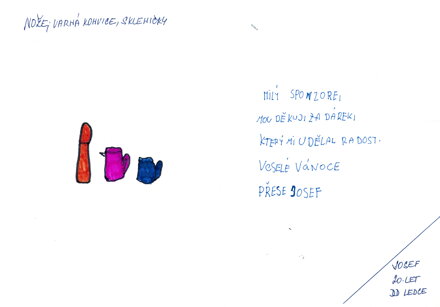 NOŽE, VARNÁ KONVICE, SKLENIČKY
MILÝ SPONZORE,
MOC DĚKUJI ZA DÁREK,
KTERÝ MI UDĚLAL RADOST.
VESELÉ VÁNOCE
PŘEJE JOSEF
JOZEF
20 LET
DD LEDCE